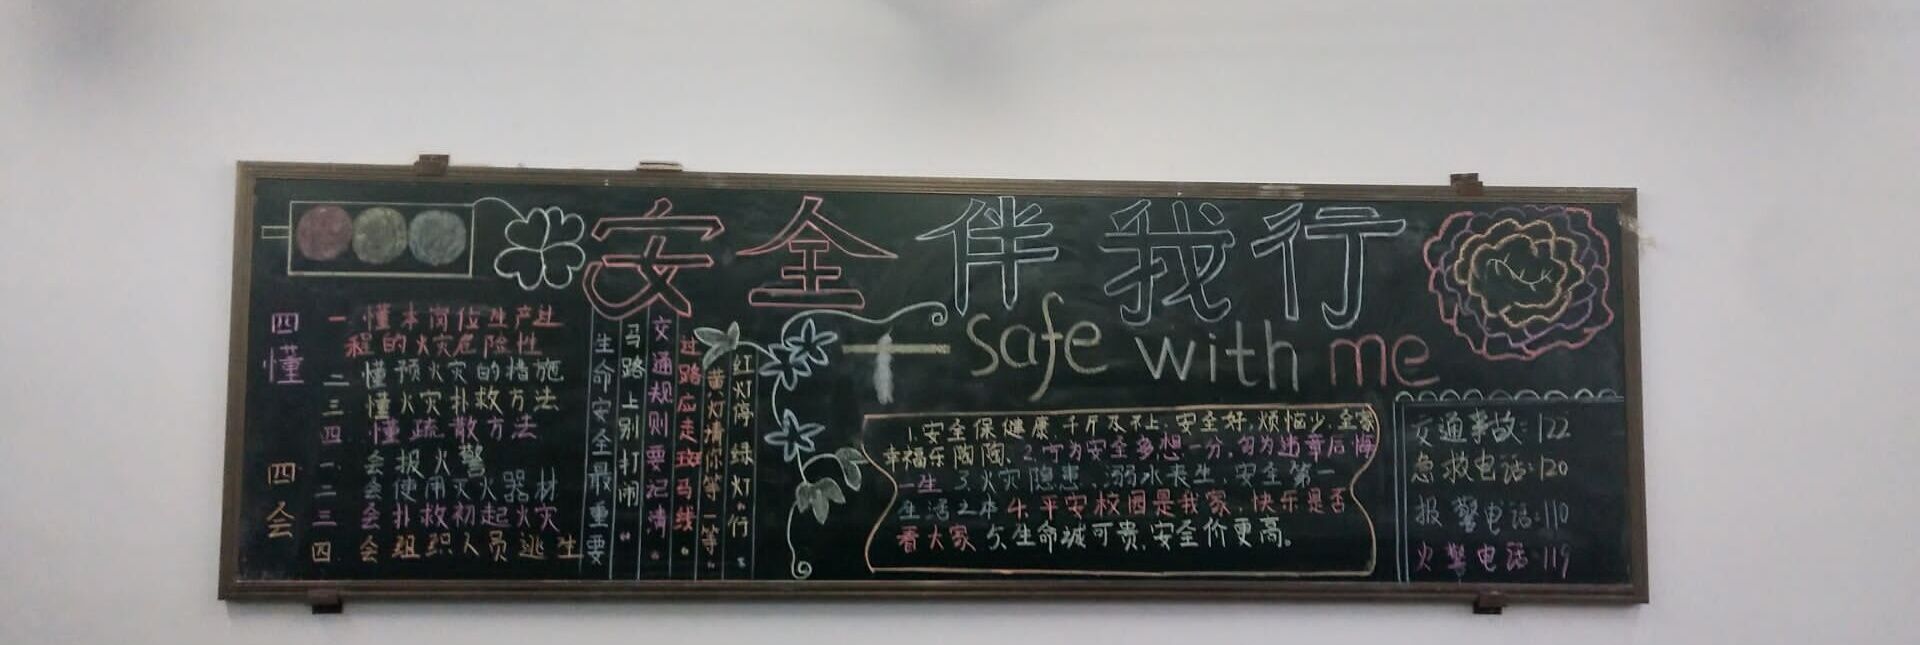 安全伴我行
safe with me
四懂
一 懂本岗位生产过
程的火灾危险性
二 懂预火灾的措施
三 懂火灾扑救方法
四 懂疏散方法
四会
一. 会报火警
二 会使用灭火器材
三 会扑救初起火灾
四. 会组织人员逃生
红灯停 绿灯行
黄灯请你等一等
过路应走斑马线
交通规则要记清
马路上别打闹
生命安全最重要
1.安全保健康.千斤及不上.安全好,烦恼少.全家
幸福乐陶陶.2.宁为安全多想一分,勿为违章后悔
一生 3.火灾隐患 溺水丧生,安全第一
生活之本 4.平安校园是我家,快乐是否
看大家 5.生命诚可贵,安全价更高。
交通事故:122
急救电话:120
报警电话:110
火警电话:119